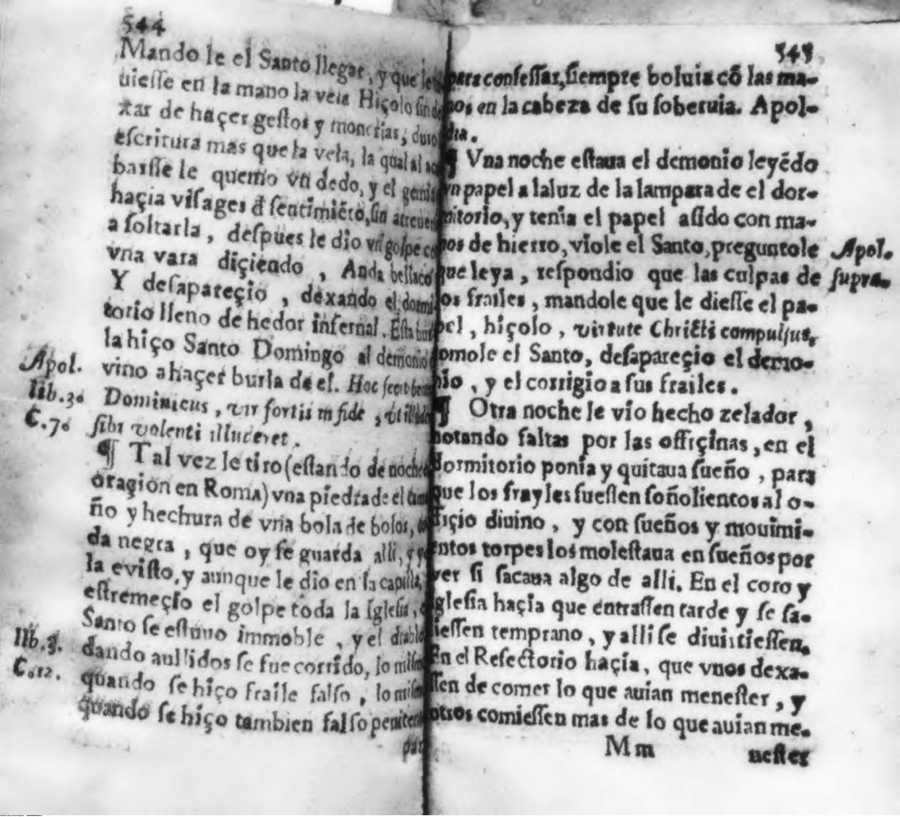 544
Mando le el Santo llegar, y que le tu
uiesse en la mano la vela Hiçolo sin de
xar de haçer gestos y monerias, duro
escritura mas que la vela, la qual al
barsse le quemo vn dedo, y el
haçia visages đ sentimiẽto, sin atreuer
a soltarla, despues le dio vn golpe
vna vara diçiendo, Anda bellaco
Y desapareçio, dexando el dormi
torio lleno de hedor infernal. Esta
la hiço Santo Domingo al demonio
vino a haçer burla de el. Hoc fecit
Dominicus, vir fortis in fide,
sibi volenti illuderet.
Apol.
lib. 3.
C. 7.
¶ Tal vez le tiro (estando de noche
oraçion en Roma) vna piedra de el
ño y hechura de vna bola de bolos,
da negra, que oy se guarda alli, y yo
la e visto, y aunque le dio en la capilla,
estremeçio el golpe toda la Iglesia,
Santo se estuuo immoble, y el diablo
dando aullidos se fue corrido, lo mismo
quando se hiço fraile falso, lo mismo
quando se hiço tambien falso penitente
lib. 3.
C. 12.
par
545
para confessar, siempre boluia cõ las ma-
nos en la cabeza de su soberuia. Apol-
dia.
¶ Vna noche estaua el demonio leyẽdo
vn papel a la luz de la lampara de el dor-
mitorio, y tenia el papel asido con ma-
nos de hierro, viole el Santo, preguntole
que leya, respondio que las culpas de
los frailes, mandole que le diesse el pa-
pel, hiçolo, virtute Christi compulsus,
tomole el Santo, desapareçio el demo-
nio, y el corrigio a sus frailes.
Apol.
supra.
¶ Otra noche le vio hecho zelador,
notando faltas por las offiçinas, en el
dormitorio ponia y quitaua sueño, para
que los frayles fuessen soñolientos al o-
fiçio diuino, y con sueños y mouimi-
entos torpes los molestaua en sueños por
ver si sacaua algo de alli. En el coro y
Iglesia haçia que entrassen tarde y se sa-
liessen temprano, y alli se diuirtiessen.
En el Refectorio haçia, que vnos dexa-
ssen de comer lo que auian menester, y
otros comiessen mas de lo que auian me-
Mm nester